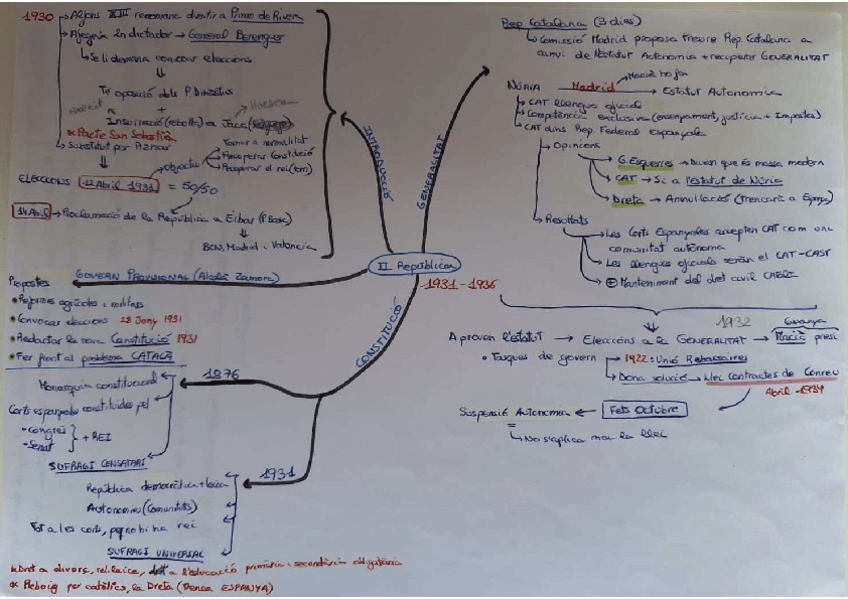 1930
Alfons XIII reanomena directiu a Primo de Rivera
Afegeix un dictador → General Berenguer
Se li demana convocar eleccions
Té oposició dels P. Dinàstics
Insurrecció (revolta) a Jaca
Huesca
* Pacte San Sebastià
Substituït per Aznar
objectiu
Tornar a normalitat
Recuperar Constitució
Recuperar el rei (torn)
ELECCIONS 12 Abril 1931 = 50/50
14 Abril → Proclamació de la República a Eibar (P. Basc)
BCN, Madrid i València
INTRODUCCIÓ
GENERALITAT
II República
1931 - 1936
CONSTITUCIÓ
GOVERN PROVISIONAL (Alcalá Zamora)
Propostes
• Reformes agrícoles i militars
• Convocar eleccions 28 Juny 1931
• Redactar la nova Constitució 1931
• Fer front al problema CATALÀ
1876
Monarquia constitucional
Corts espanyoles constituïdes pel
• Congrés
• Senat
+ REI
SUFRAGI CENSATARI
1931
República democràtica + laica
Autonomies (Comunitats)
Tot a les corts, perquè no hi ha rei
SUFRAGI UNIVERSAL
* Dret a divorç, rel. laica, dret a l'educació primària i secundària obligatòria
* Rebuig per catòlics, la Dreta (Trenca ESPANYA)
Rep. Catalana (3 dies)
Comissió Madrid proposa treure Rep. Catalana a
canvi de l'Estatut Autonomia + recuperar GENERALITAT
Macià ho fa
NÚRIA Madrid → Estatut Autonomia
CAT llengua oficial
Competència exclusiva (ensenyament, justícia + Impostos)
CAT dins Rep. Federal Espanyola
Opinions
G. Esquerres → Diuen que és massa modern
CAT → Sí a l'estatut de Núria
Dreta → Anul·lació (Trencarà a Espanya)
Resultats
Les Corts Espanyoles accepten CAT com una
comunitat autònoma
Les llengues oficials seran el CAT-CAST
⊕ Manteniment del dret civil CATALÀ
1932
Guanya
Aproven l'estatut → Eleccions a la GENERALITAT → Macià presi
• Tasques de govern
1922: Unió Rabassaires
Dona solució → Llei Contractes de Conreu
Abril - 1934
Suspensió Autonomia ← Fets Octubre
No s'aplica mai la llei